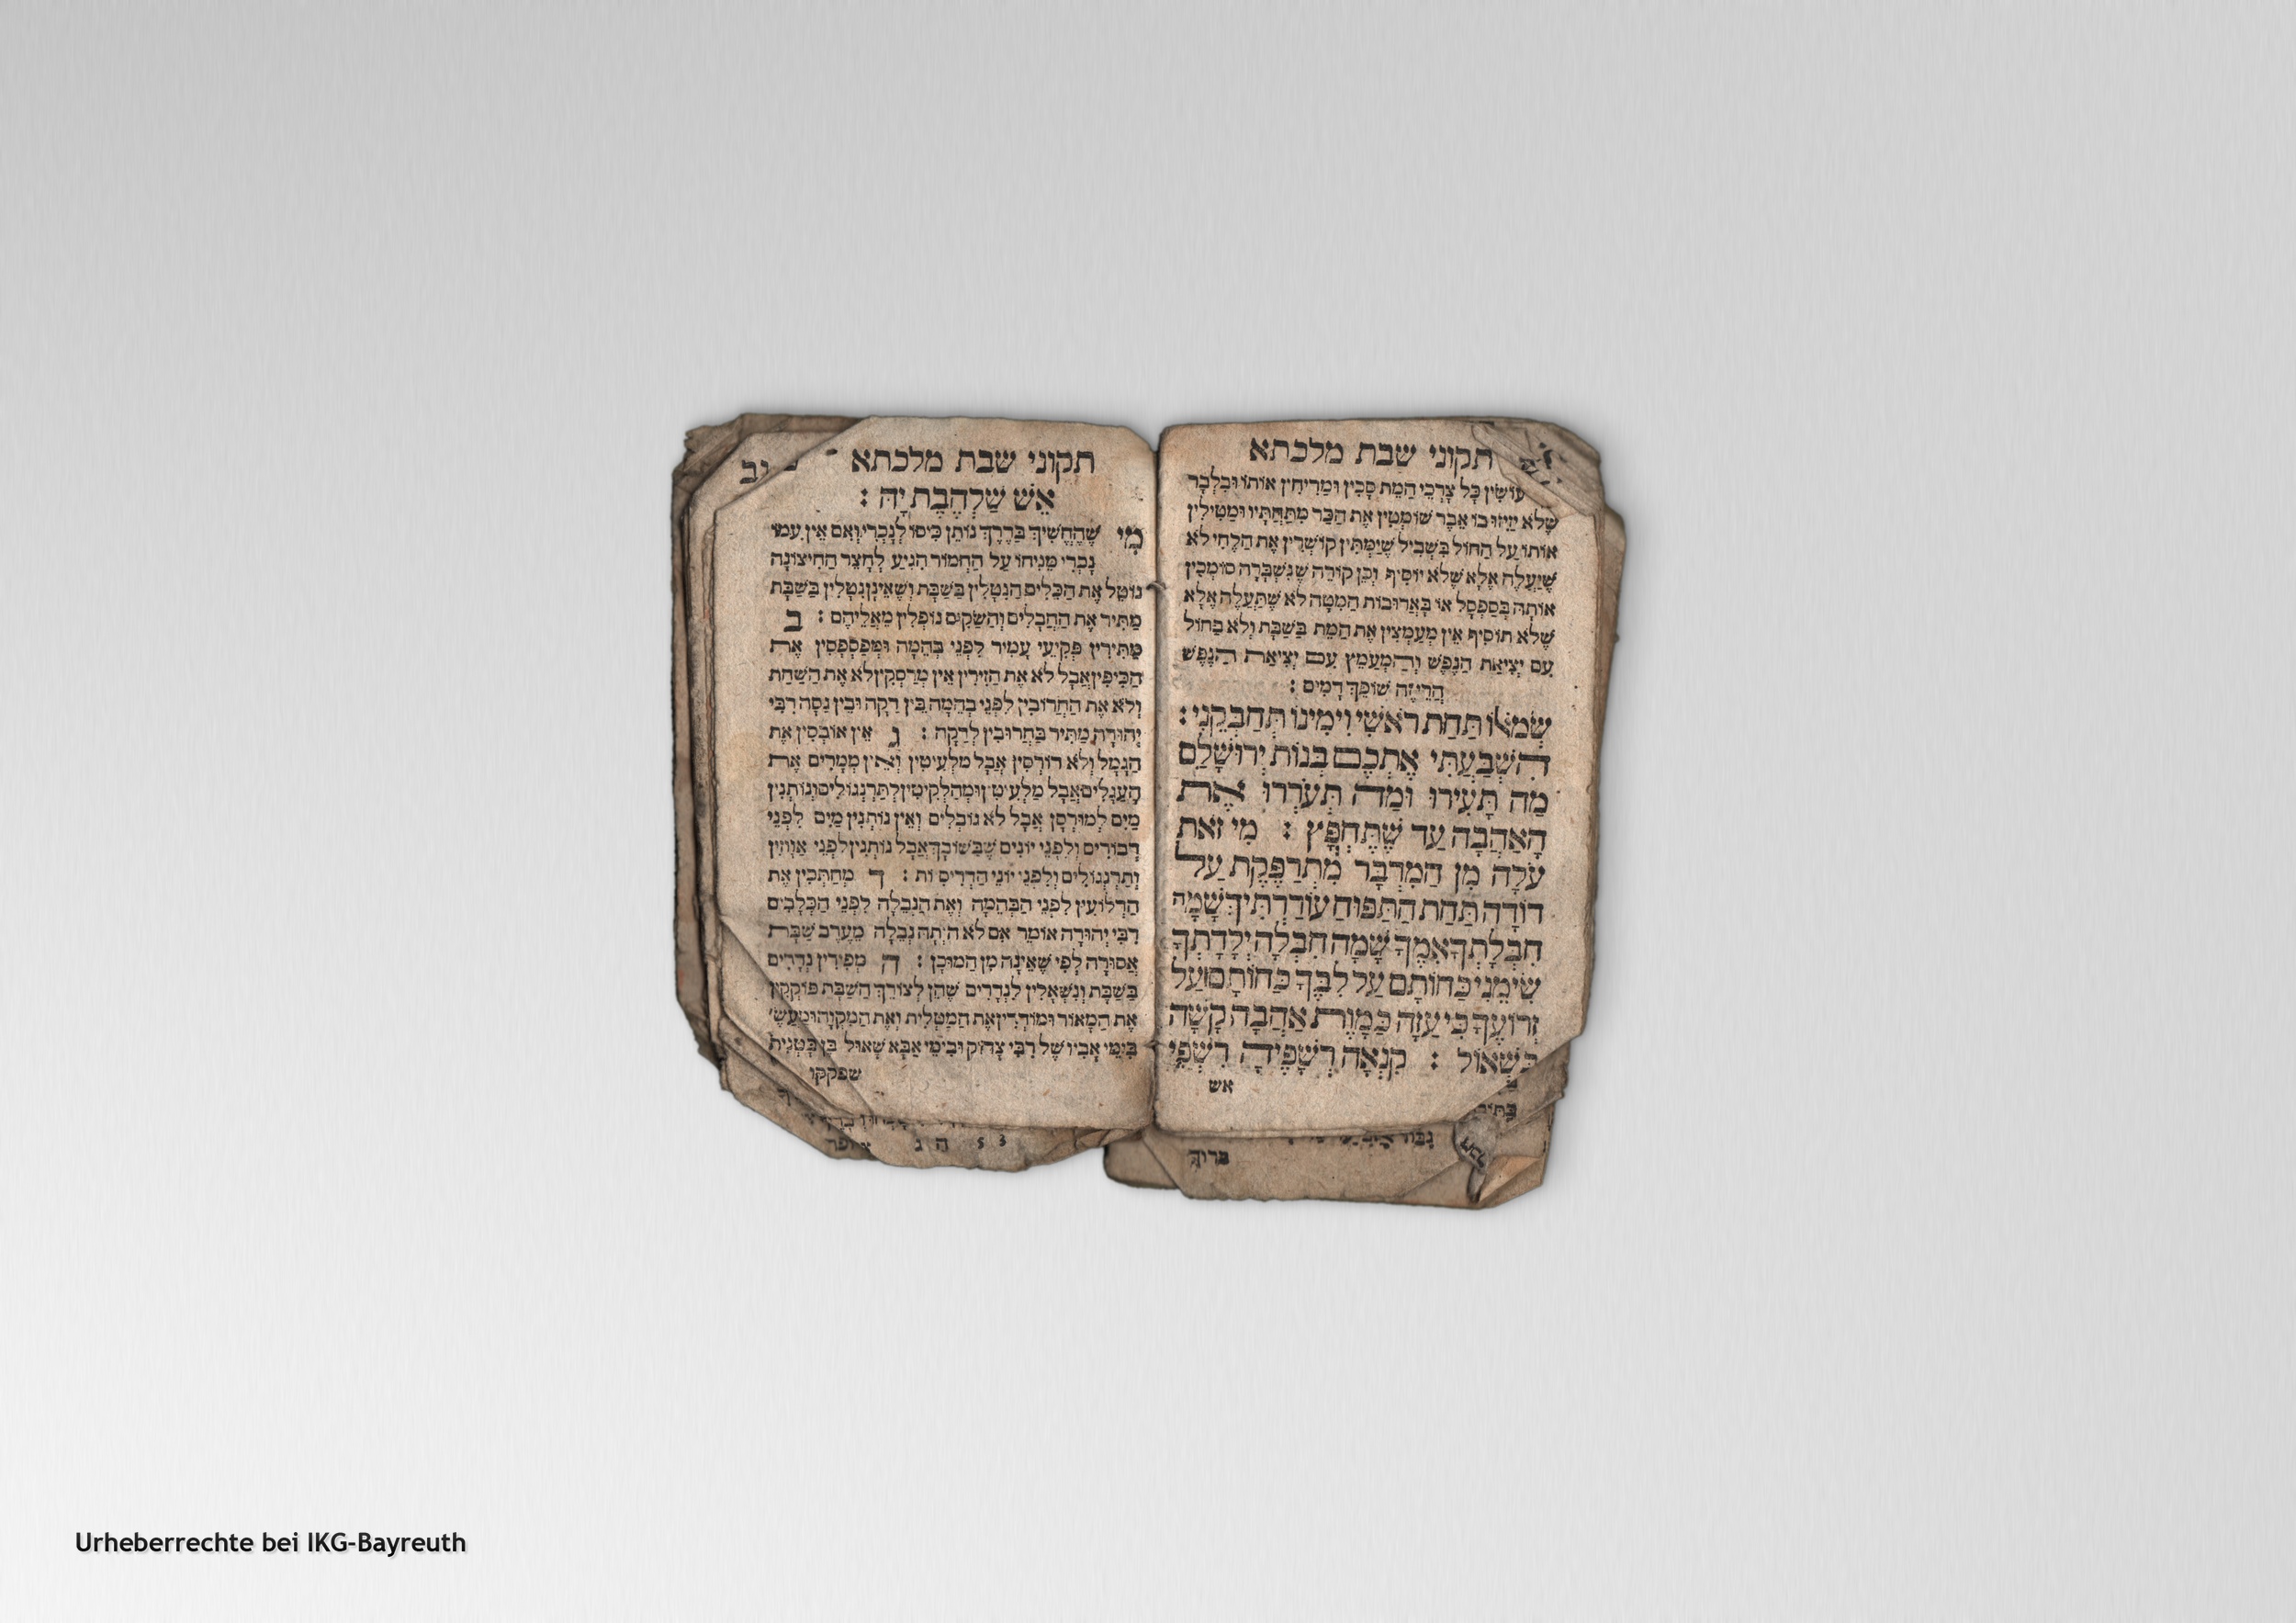 תקוני שבת מלכתא
עושין כל צרכי המת סכין ומדיחין אותו ובלבד
שלא יזיזו בו אבר שומטין את הכר מתחתיו ומטילין
אותו על החול בשביל שימתין קושרין את הלחי לא
שיעלה אלא שלא יוסיף וכן קורה שנשברה סומכין
אותה בספסל או בארובות המטה לא שתעלה אלא
שלא תוסיף אין מעמצין את המת בשבת ולא בחול
עם יציאת הנפש והמעמץ עם יציאת הנפש
הרי זה שופך דמים :
שְׂמאלו תַּחַת ראשִׁי וִימִינוֹ תְּחַבְּקֵנִי :
הִשְׁבַּעְתִּי אֶתְכֶם בְּנוֹת יְרוּשָׁלִַם
מַה תָּעִירוּ וּמַה תְּעֹרְרוּ אֶת
הָאַהֲבָה עַד שֶׁתֶּחְפָּץ : מִי זֹאת
עֹלָה מִן הַמִּדְבָּר מִתְרַפֶּקֶת עַל
דּוֹדָהּ תַּחַת הַתַּפּוּחַ עוֹרַרְתִּיךָ שָׁמָּה
חִבְּלָתְךָ אִמֶּךָ שָׁמָּה חִבְּלָה יְלָדָתְךָ
שִׂימֵנִי כַּחוֹתָם עַל לִבֶּךָ כַּחוֹתָם עַל
זְרוֹעֶךָ כִּי עַזָּה כַמָּוֶת אַהֲבָה קָשָׁה
כִּשְׁאוֹל : קִנְאָה רְשָׁפֶיהָ רִשְׁפֵּי
אש
ברוך
תקוני שבת מלכתא יב
אֵשׁ שַׁלְהֶבֶת יָהּ :
מי שהחשיך בדרך נותן כיסו לנכרי ואם אין עמו
נכרי מניחו על החמור הגיע לחצר החיצונה
נוטל את הכלים הנטלין בשבת ושאינן נטלין בשבת
מתיר את החבלים והשקים נופלין מאליהם : ב
מתירין פקיעי עמיר לפני בהמה ומפספסין את
הכיפין אבל לא את הזירין אין מרסקין לא את השחת
ולא את החרובין לפני בהמה בין דקה ובין גסה רבי
יהודה מתיר בחרובין לדקה : ג אין אובסין את
הגמל ולא דורסין אבל מלעיטין ואין ממרים את
העגלים אבל מלעיטין ומהלקיטין לתרנגולים ונותנין
מים למורסן אבל לא גובלים ואין נותנין מים לפני
דבורים ולפני יונים שבשובך אבל נותנין לפני אווזין
ותרנגולים ולפני יוני הדריסיות : ד מחתכין את
הדלועין לפני הבהמה ואת הנבלה לפני הכלבים
רבי יהודה אומר אם לא היתה נבלה מערב שבת
אסורה לפי שאינה מן המוכן : ה מפירין נדרים
בשבת ונשאלין לנדרים שהן לצורך השבת פוקקין
את המאור ומודדין את המטלית ואת המקוה ומעשׂ'
בימי אביו של רבי צדוק ובימי אבא שאול בן בטנית
שפקקו